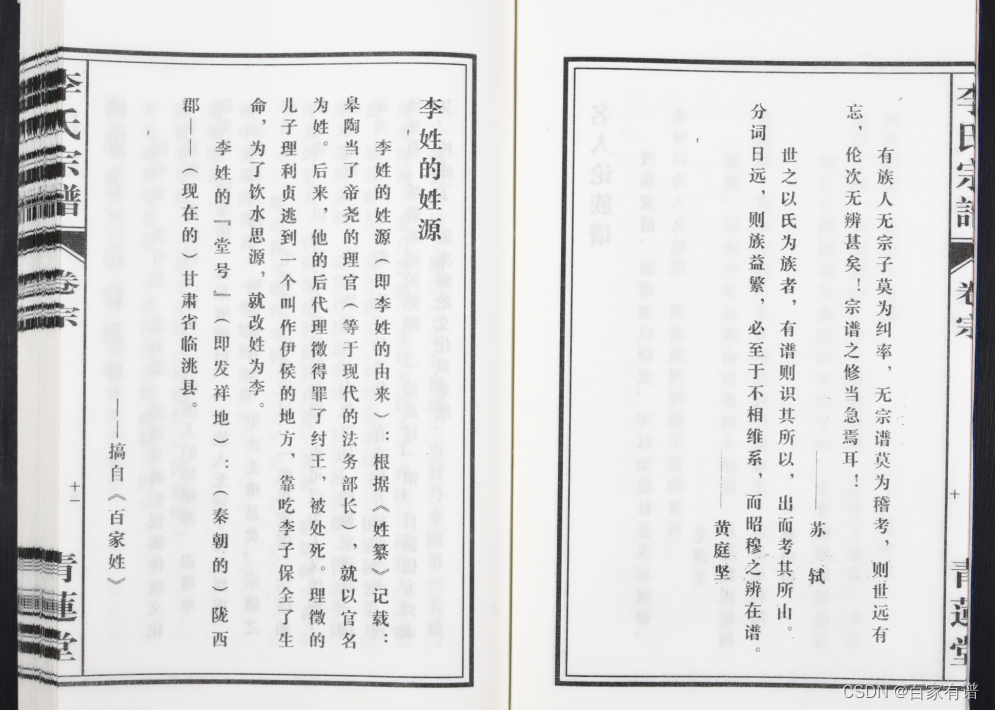 李氏宗譜
卷宗
十
青蓮堂
有族人无宗子莫为纠率，无宗谱莫为稽考，则世远有
忘，伦次无辨甚矣！宗谱之修当急焉耳！
——苏 轼
世之以氏为族者，有谱则识其所以，出而考其所由。
分词日远，则族益繁，必至于不相维系，而昭穆之辨在谱。
——黄庭坚
李姓的姓源
李姓的姓源（即李姓的由来）：根据《姓纂》记载：
皋陶当了帝尧的理官（等于现代的法务部长），就以官名
为姓。后来，他的后代理徵得罪了纣王，被处死。理徵的
儿子理利贞逃到一个叫作伊侯的地方，靠吃李子保全了生
命，为了饮水思源，就改姓为李。
李姓的『堂号』（即发祥地）：（秦朝的）陇西
郡——（现在的）甘肃省临洮县。
——搞自《百家姓》
李氏宗譜
卷宗
十一
青蓮堂
CSDN @百家有谱